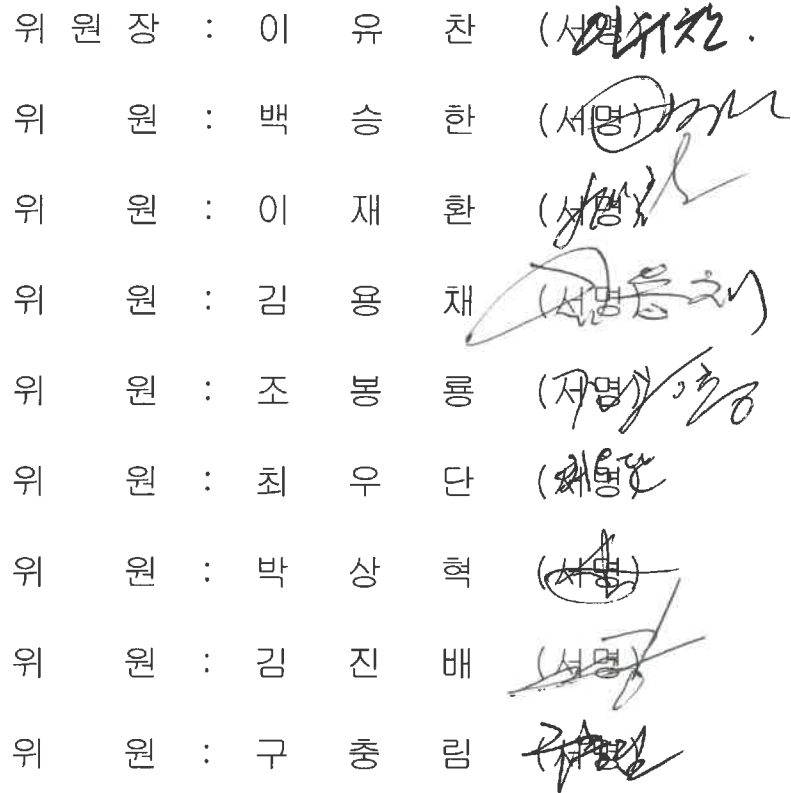 위 원 장 : 이 유 찬 (서명)
위 원 : 백 승 한 (서명)
위 원 : 이 재 환 (서명)
위 원 : 김 용 채 (서명)
위 원 : 조 봉 룡 (서명)
위 원 : 최 우 단 (서명)
위 원 : 박 상 혁 (서명)
위 원 : 김 진 배 (서명)
위 원 : 구 충 림 (서명)